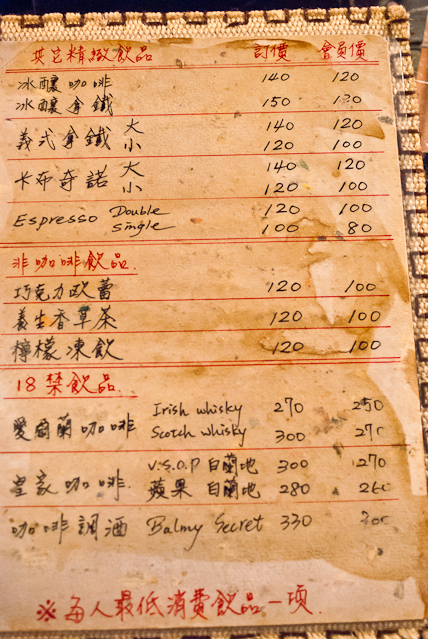 其它精緻飲品 訂價 會員價
冰釀咖啡 140 120
冰釀拿鐵 150 130
義式拿鐵 大 140 120
小 120 100
卡布奇諾 大 140 120
小 120 100
Espresso Double 120 100
single 100 80
非咖啡飲品.
巧克力歐蕾 120 100
養生香草茶 120 100
檸檬凍飲 120 100
18禁飲品.
愛爾蘭咖啡 Irish whisky 270 250
Scotch whisky 300 270
皇家咖啡. V.S.O.P 白蘭地 300 270
蘋果 白蘭地 280 260
咖啡調酒 Balmy Secret 330 300
※每人最低消費飲品一項.